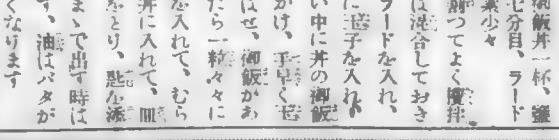 御飯丼一杯、鹽
七分目、ラード
素少々
割つてよく攪拌
は混合しておき
ラードを入れ、
に玉子を入れ
い中に丼の御飯
かけ、手早く
はぜ、御飯があ
たら一粒々々に
を入れて、むら
丼に入れて、皿
をとり、匙を添
まゝで出す時は
す、油はバタが
くなります